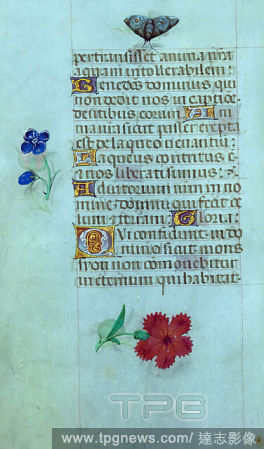 pertransisset anima nra
aquam intollerabilem:
Benedos dominus qui
non dedit nos in captioe
dentibus eorum Ani
ma nra sicut passer erepta
est de laqueo venantiu:
Laqueus contritus e
et nos liberati sumus:
Adiutorium nrm in no
mine domini qui fecit ce
lum et terram: Gloria:
Qui confidunt in do
mino sicut mons
syon non comouebitur
in eternum qui habitat
TPG
www.tpgnews.com/ 達志影像